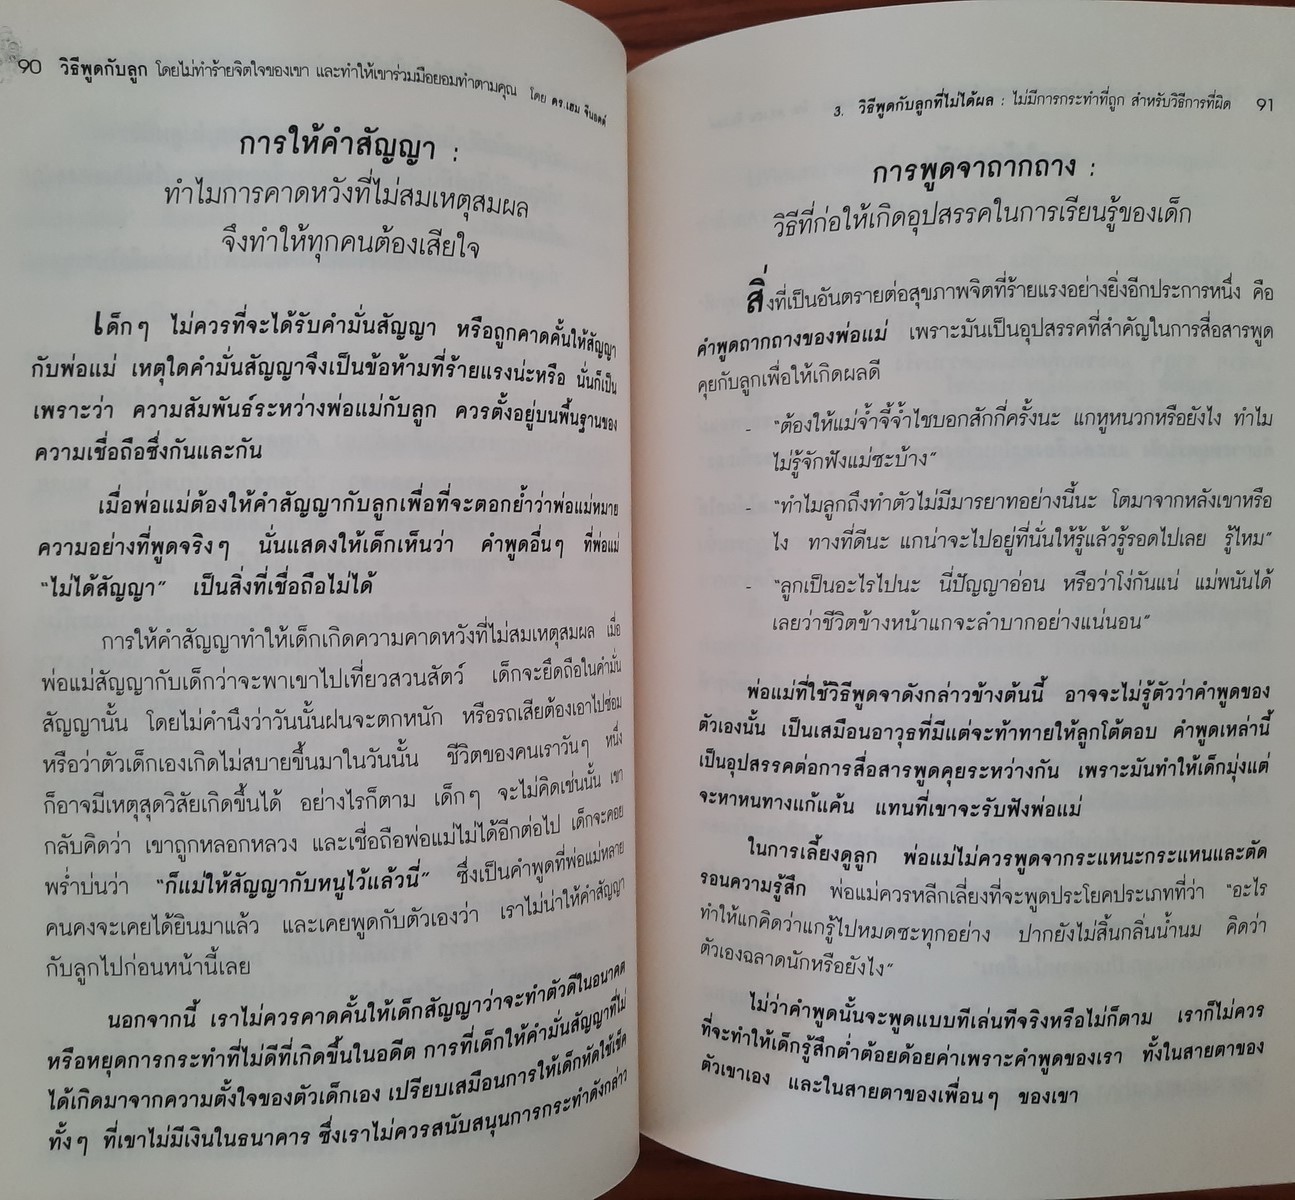 90 วิธีพูดกับลูก โดยไม่ทำร้ายจิตใจของเขา และทำให้เขาร่วมมือยอมทำตามคุณ โดย ดร.เฮม จีนอตต์
การให้คำสัญญา :
ทำไมการคาดหวังที่ไม่สมเหตุสมผล
จึงทำให้ทุกคนต้องเสียใจ
เด็กๆ ไม่ควรที่จะได้รับคำมั่นสัญญา หรือถูกคาดคั้นให้สัญญา
กับพ่อแม่ เหตุใดคำมั่นสัญญาจึงเป็นข้อห้ามที่ร้ายแรงน่ะหรือ นั่นก็เป็น
เพราะว่า ความสัมพันธ์ระหว่างพ่อแม่กับลูก ควรตั้งอยู่บนพื้นฐานของ
ความเชื่อถือซึ่งกันและกัน
เมื่อพ่อแม่ต้องให้คำสัญญากับลูกเพื่อที่จะตอกย้ำว่าพ่อแม่หมาย
ความอย่างที่พูดจริงๆ นั่นแสดงให้เด็กเห็นว่า คำพูดอื่นๆ ที่พ่อแม่
"ไม่ได้สัญญา" เป็นสิ่งที่เชื่อถือไม่ได้
การให้คำสัญญาทำให้เด็กเกิดความคาดหวังที่ไม่สมเหตุสมผล เมื่อ
พ่อแม่สัญญากับเด็กว่าจะพาเขาไปเที่ยวสวนสัตว์ เด็กจะยึดถือในคำมั่น
สัญญานั้น โดยไม่คำนึงว่าวันนั้นฝนจะตกหนัก หรือรถเสียต้องเอาไปซ่อม
หรือว่าตัวเด็กเองเกิดไม่สบายขึ้นมาในวันนั้น ชีวิตของคนเราวันๆ หนึ่ง
ก็อาจมีเหตุสุดวิสัยเกิดขึ้นได้ อย่างไรก็ตาม เด็กๆ จะไม่คิดเช่นนั้น เขา
กลับคิดว่า เขาถูกหลอกหลวง และเชื่อถือพ่อแม่ไม่ได้อีกต่อไป เด็กจะคอย
พร่ำบ่นว่า "ก็แม่ให้สัญญากับหนูไว้แล้วนี่" ซึ่งเป็นคำพูดที่พ่อแม่หลาย
คนคงจะเคยได้ยินมาแล้ว และเคยพูดกับตัวเองว่า เราไม่น่าให้คำสัญญา
กับลูกไปก่อนหน้านี้เลย
นอกจากนี้ เราไม่ควรคาดคั้นให้เด็กสัญญาว่าจะทำตัวดีในอนาคต
หรือหยุดการกระทำที่ไม่ดีที่เกิดขึ้นในอดีต การที่เด็กให้คำมั่นสัญญาที่ไม่
ได้เกิดมาจากความตั้งใจของตัวเด็กเอง เปรียบเสมือนการให้เด็กหัดใช้เช็ค
ทั้งๆ ที่เขาไม่มีเงินในธนาคาร ซึ่งเราไม่ควรสนับสนุนการกระทำดังกล่าว
3. วิธีพูดกับลูกที่ไม่ได้ผล : ไม่มีการกระทำที่ถูก สำหรับวิธีการที่ผิด 91
การพูดจาถากถาง :
วิธีที่ก่อให้เกิดอุปสรรคในการเรียนรู้ของเด็ก
สิ่งที่เป็นอันตรายต่อสุขภาพจิตที่ร้ายแรงอย่างยิ่งอีกประการหนึ่ง คือ
คำพูดถากถางของพ่อแม่ เพราะมันเป็นอุปสรรคที่สำคัญในการสื่อสารพูด
คุยกับลูกเพื่อให้เกิดผลดี
- "ต้องให้แม่จ้ำจี้จ้ำไชบอกสักกี่ครั้งนะ แกหูหนวกหรือยังไง ทำไม
ไม่รู้จักฟังแม่ซะบ้าง"
- "ทำไมลูกถึงทำตัวไม่มีมารยาทอย่างนี้นะ โตมาจากหลังเขาหรือ
ไง ทางที่ดีนะ แกน่าจะไปอยู่ที่นั่นให้รู้แล้วรู้รอดไปเลย รู้ไหม"
- "ลูกเป็นอะไรไปนะ นี่ปัญญาอ่อน หรือว่าโง่กันแน่ แม่พนันได้
เลยว่าชีวิตข้างหน้าแกจะลำบากอย่างแน่นอน"
พ่อแม่ที่ใช้วิธีพูดจาดังกล่าวข้างต้นนี้ อาจจะไม่รู้ตัวว่าคำพูดของ
ตัวเองนั้น เป็นเสมือนอาวุธที่มีแต่จะท้าทายให้ลูกโต้ตอบ คำพูดเหล่านี้
เป็นอุปสรรคต่อการสื่อสารพูดคุยระหว่างกัน เพราะมันทำให้เด็กมุ่งแต่
จะหาหนทางแก้แค้น แทนที่เขาจะรับฟังพ่อแม่
ในการเลี้ยงดูลูก พ่อแม่ไม่ควรพูดจากระแหนะกระแหนและตัด
รอนความรู้สึก พ่อแม่ควรหลีกเลี่ยงที่จะพูดประโยคประเภทที่ว่า "อะไร
ทำให้แกคิดว่าแกรู้ไปหมดซะทุกอย่าง ปากยังไม่สิ้นกลิ่นน้ำนม คิดว่า
ตัวเองฉลาดนักหรือยังไง"
ไม่ว่าคำพูดนั้นจะพูดแบบทีเล่นทีจริงหรือไม่ก็ตาม เราก็ไม่ควร
ที่จะทำให้เด็กรู้สึกต่ำต้อยด้อยค่าเพราะคำพูดของเรา ทั้งในสายตาของ
ตัวเขาเอง และในสายตาของเพื่อนๆ ของเขา